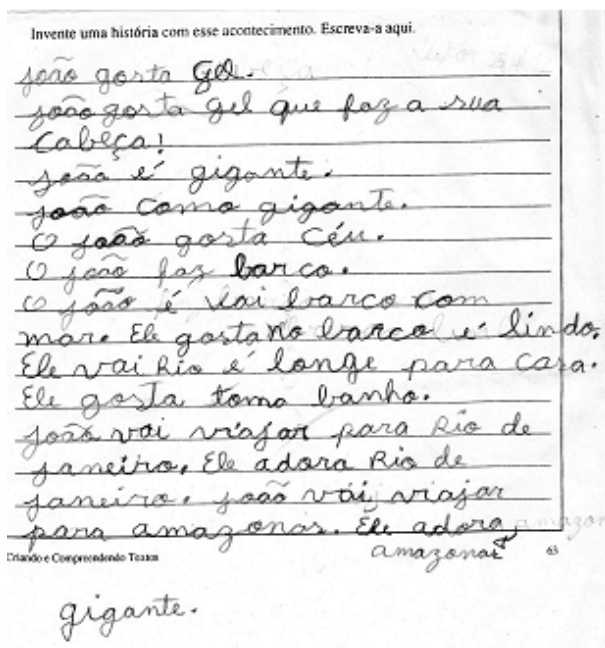 Invente uma história com esse acontecimento. Escreva-a aqui.
joão gosta Gel.
joão gosta gel que faz a sua
Cabeça!
joão é gigante.
joão como gigante.
O joão gosta Céu.
O joão faz barco.
O joão é vai barco com
mar. Ele gosta no barco é lindo.
Ele vai Rio é longe para casa.
Ele gosta toma banho.
joão vai viajar para Rio de
janeiro. Ele adora Rio de
janeiro. joão vai viajar
para amazonas. Ele adora amazon
amazonas
Criando e Compreendendo Textos 63
gigante.